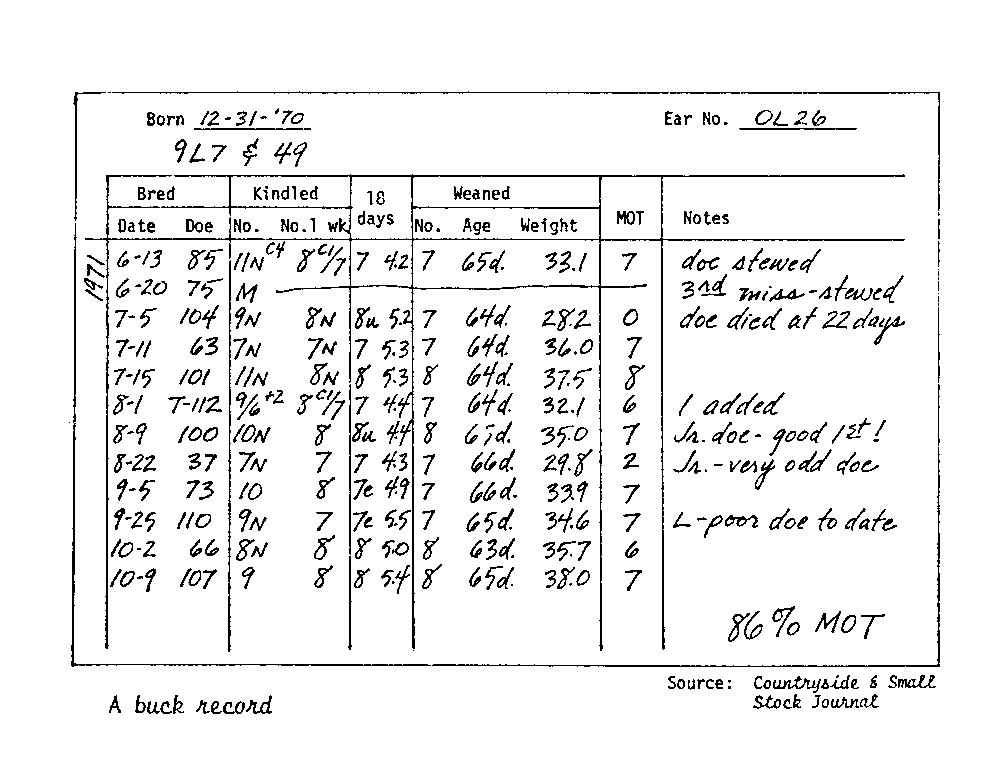 Born 12-31-'70 Ear No. OL26
9L7 & 49
Bred Kindled 18 days Weaned MOT Notes
Date Doe No. No.1 wk No. Age Weight
1971
6-13 85 11N C4 8 C1/7 7 4.2 7 65d. 33.1 7 doe stewed
6-20 75 M 3rd miss-stewed
7-5 104 9N 8N 8u 5.2 7 64d. 28.2 0 doe died at 22 days
7-11 63 7N 7N 7 5.3 7 64d. 36.0 7
7-15 101 11N 8N 8 5.3 8 64d. 37.5 8
8-1 T-112 9/6 +2 8 C1/7 7 4.4 7 64d. 32.1 6 1 added
8-9 100 10N 8 8u 4.4 8 d. 35.0 7 Jr. doe- good 1st!
8-22 37 7N 7 7 4.3 7 66d. 29.8 2 Jr.-very odd doe
9-5 73 10 8 7e 4.9 7 66d. 33.9 7
9-25 110 9N 7 7e 5.5 7 65d. 34.6 7 L-poor doe to date
10-2 66 8N 8 8 5.0 8 63d. 35.7 6
10-9 107 9 8 8 5.4 8 65d. 38.0 7
86% MOT
Source: Countryside & Small
Stock Journal
A buck record